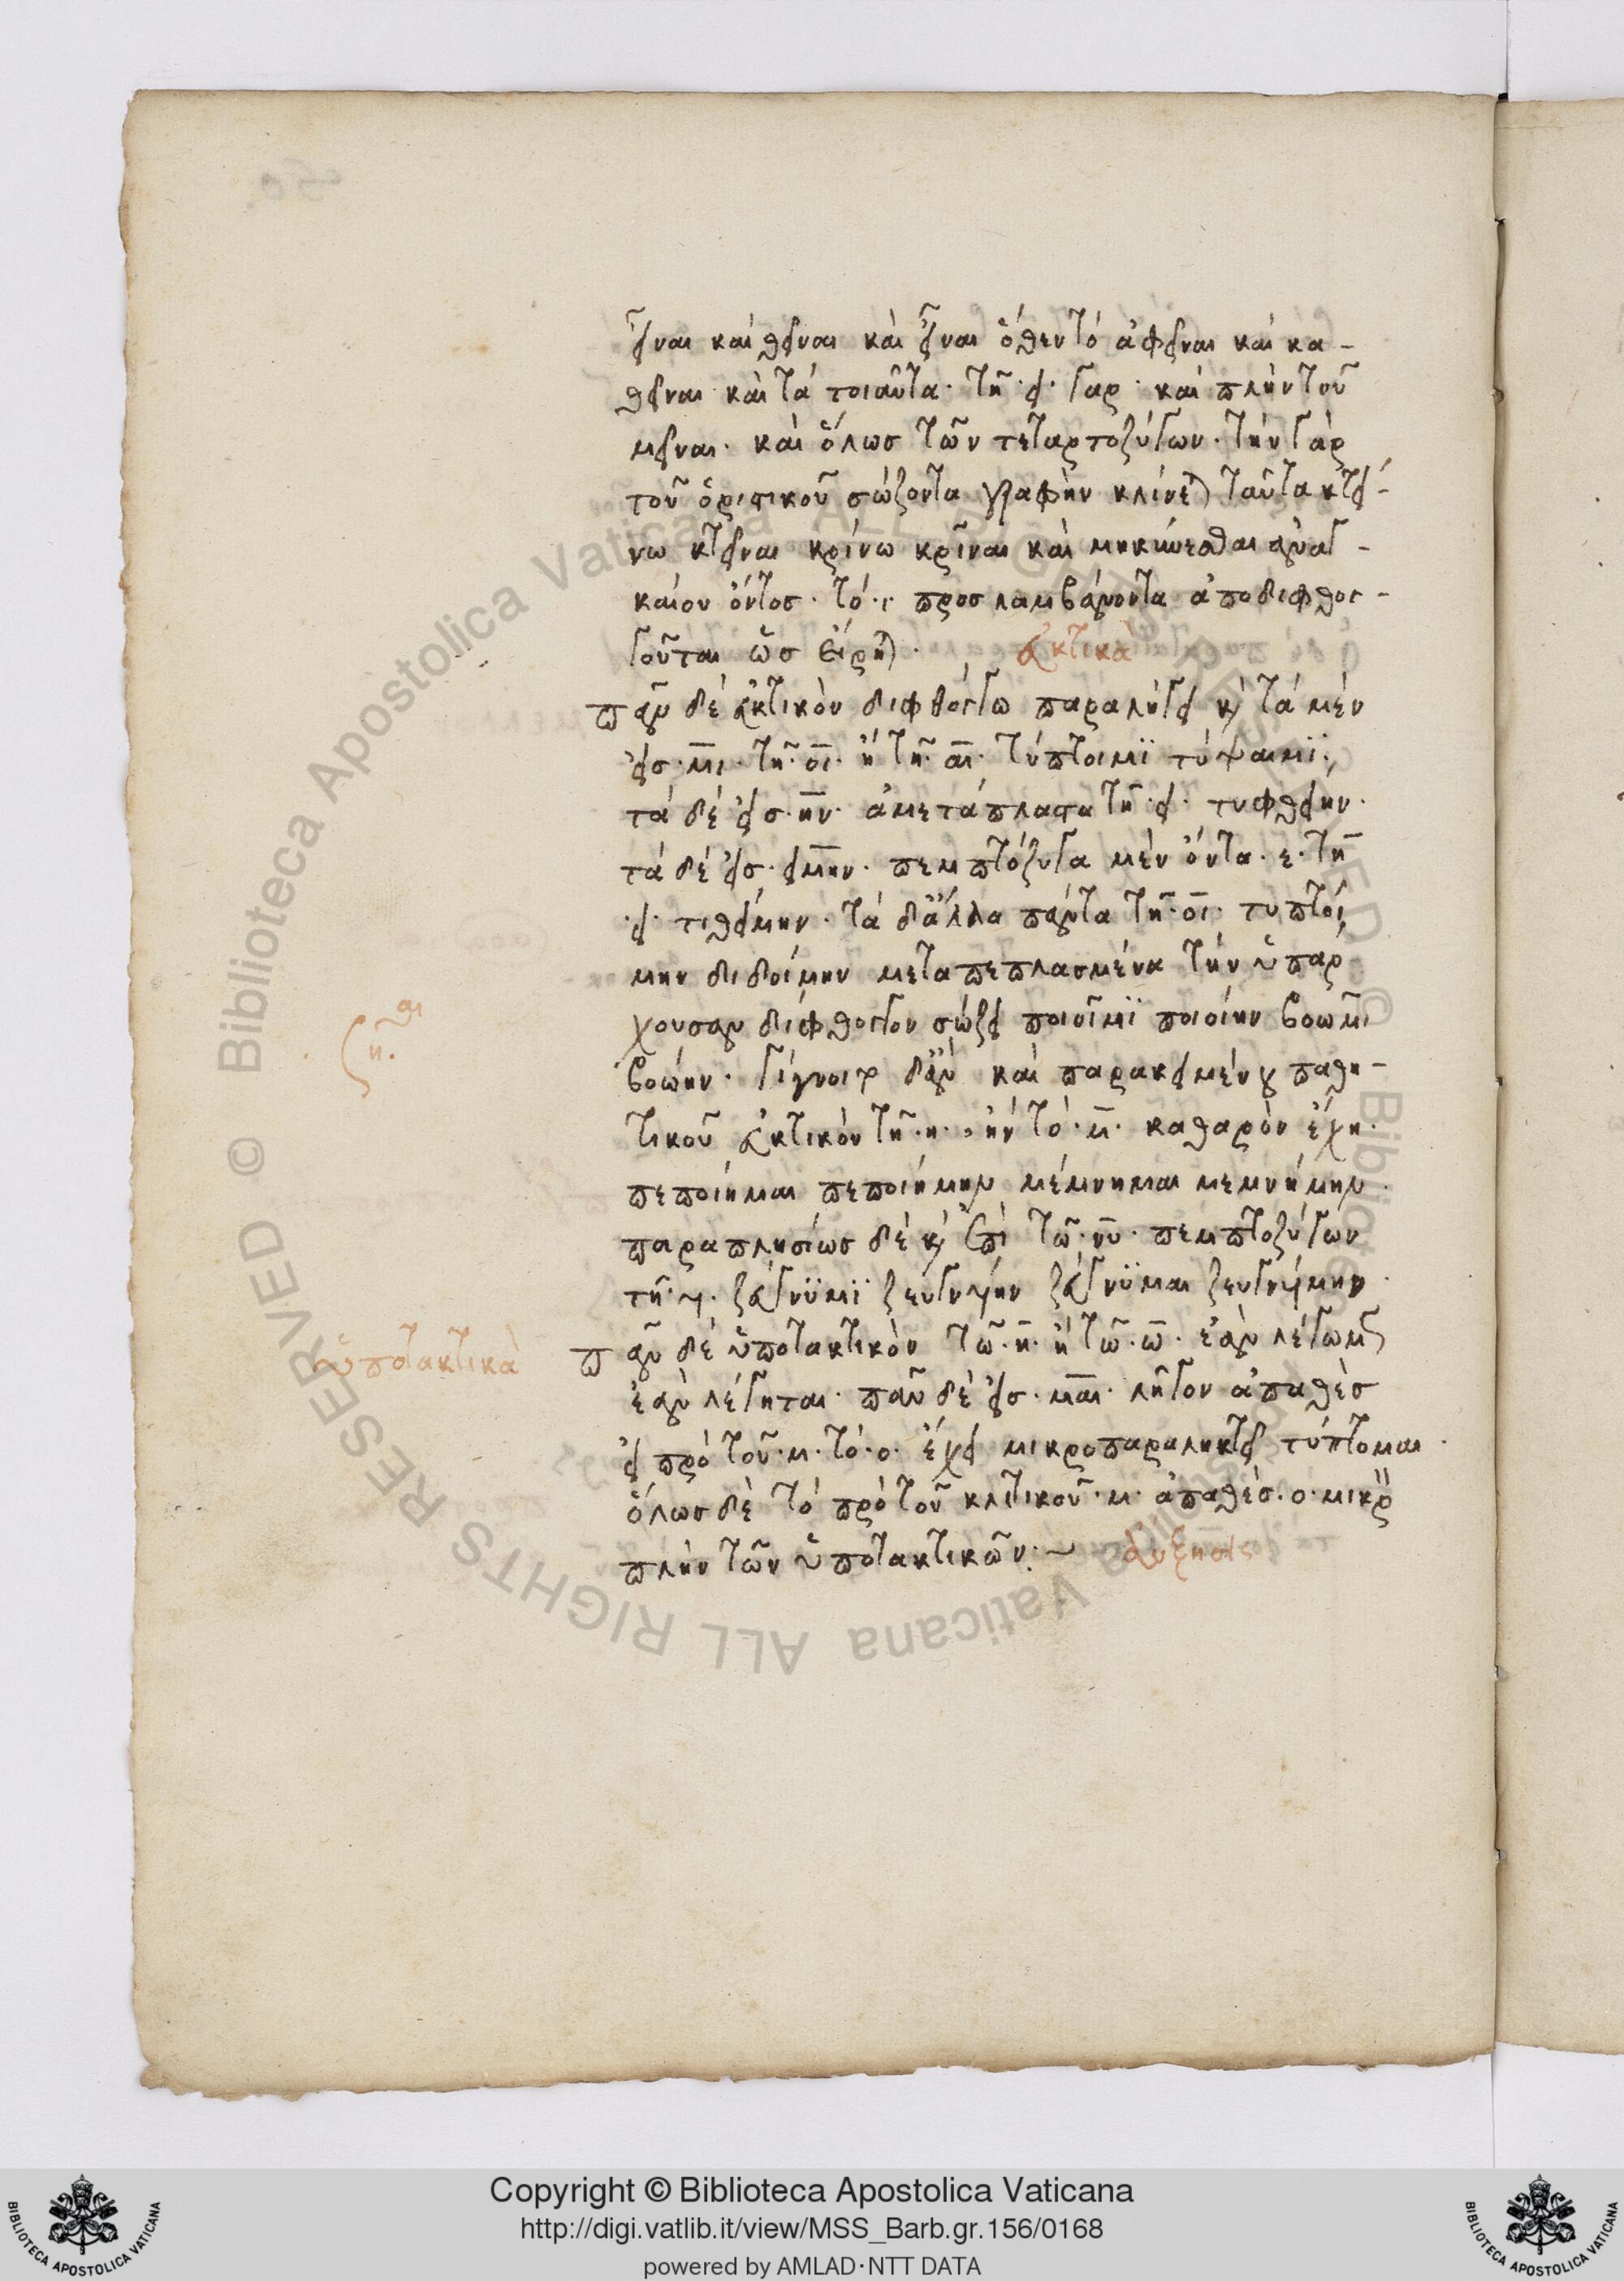 εῖναι καὶ θεῖναι καὶ εἷναι ὅθεν τὸ ἀφεῖναι καὶ κα-
θεῖναι καὶ τὰ τοιαῦτα· τῇ· ει· γαρ· καὶ πλὴν τοῦ
μεῖναι· καὶ ὅλωσ τῶν τεταρτοζύγων· τὴν γὰρ
τοῦ ὁριστικοῦ σώζοντα γραφὴν κλίνεται ταῦτα κτεί-
νω κτεῖναι κρίνω κρῖναι καὶ μηκύνεσθαι αναγ-
καίου ὄντοσ· τό· ι· προσλαμβάνοντα ἀποδιφθογ-
γοῦται ὡσ εἴρηται· εὐκτικὰ
παν δὲ εὐκτικὸν διφθόγγω παραλήγει καὶ τὰ μὲν
εἰσ· μι· τῇ· οι· ἢ τῇ· αι· τύπτοιμϊ τύψαιμϊ·
τὰ δὲ εἰσ· ην· ἀμετάπλαστα τῇ· ει· τυφθείην·
τὰ δὲ εἰσ· ειμην· πεμπτόζυγα μὲν ὄντα· ε· τῇ
·ει· τιθείμην· τὰ δἄλλα πάντα τῇ· οι· τυπτοί
μην διδοίμην μεταπεπλασμένα τὴν ὑπάρ
χουσαν δίφθογγον σώζει ποιοῖμϊ ποιοίην βοῶμι
βοώην· γίγνοιτο δἂν καὶ παρακειμένου παθη-
τικοῦ εὐκτικὸν τῇ· η· ἢν τὸ· μ· καθαρὸν ἔχη·
αι
η·
πεποίημαι πεποιήμην μέμνημαι μεμνήμην·
παραπλησίωσ δὲ καὶ ἐπὶ τῶ· νυ· πεμπτοζύγων
τῇ· υι· ζεύγνϋμϊ ζευγνυίην ζεύγνϋμαι ζευγνυίμην·
ὑποτακτικὰ
παν δὲ ὑποτακτικὸν τῶ· η· ἢ τῶ· ω· ἐὰν λέγωμεν
ἐὰν λέγηται· παν δὲ εἰσ· μαι· λῆγον ἀπαθὲσ
εἰ πρὸ τοῦ· μ· τὸ· ο· ἔχει μικροπαραληκτεῖ τύπτομαι·
ὅλωσ δὲ τὸ πρὸ τοῦ κλιτικοῦ· μ· ἀπαθὲσ· ο· μικρὸν
πλὴν τῶν ὑποτακτικῶν:~ αὔξησις
Copyright © Biblioteca Apostolica Vaticana
http://digi.vatlib.it/view/MSS_Barb.gr.156/0168
powered by AMLAD·NTT DATA
BIBLIOTECA APOSTOLICA VATICANA
BIBLIOTECA APOSTOLICA VATICANA
Biblioteca Apostolica Vaticana ALL RIGHTS RESERVED ©
Biblioteca Apostolica Vaticana ALL RIGHTS RESERVED ©